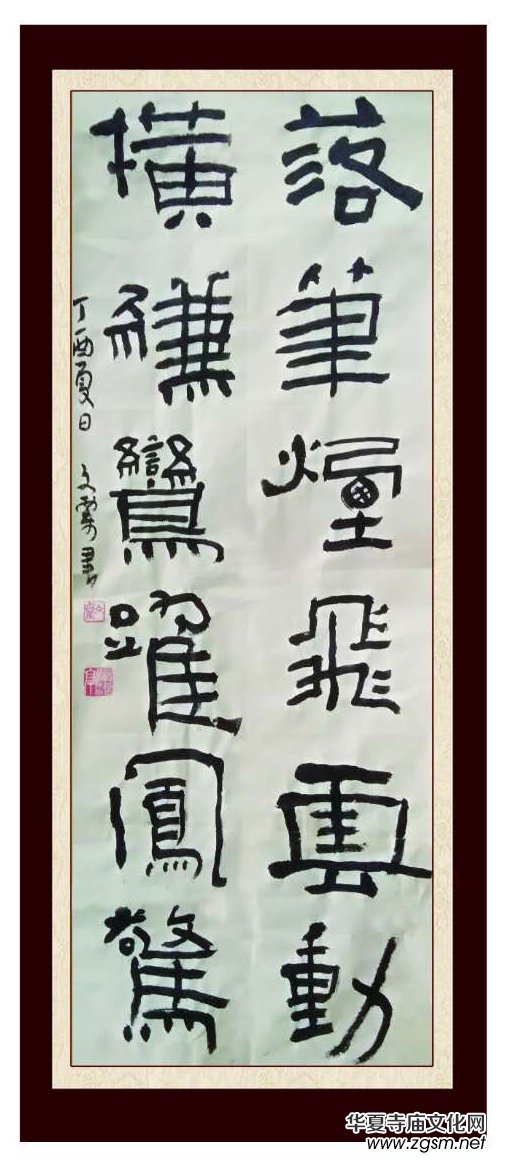 落筆煙飛雲動
橫縑鸞躍鳳驚
丁酉夏日 文 書
华夏寺庙文化网
www.zgsm.net